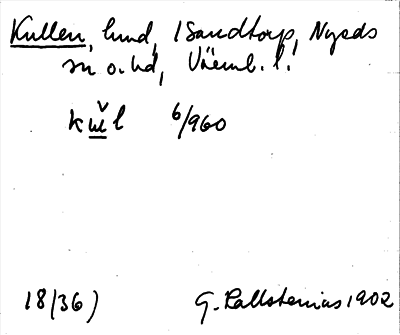 Kullen, lund, 1 Sandtorp, Nyeds
sn o. hd, Värml. l.
6/960
18/36) G. Kallstenius 1902